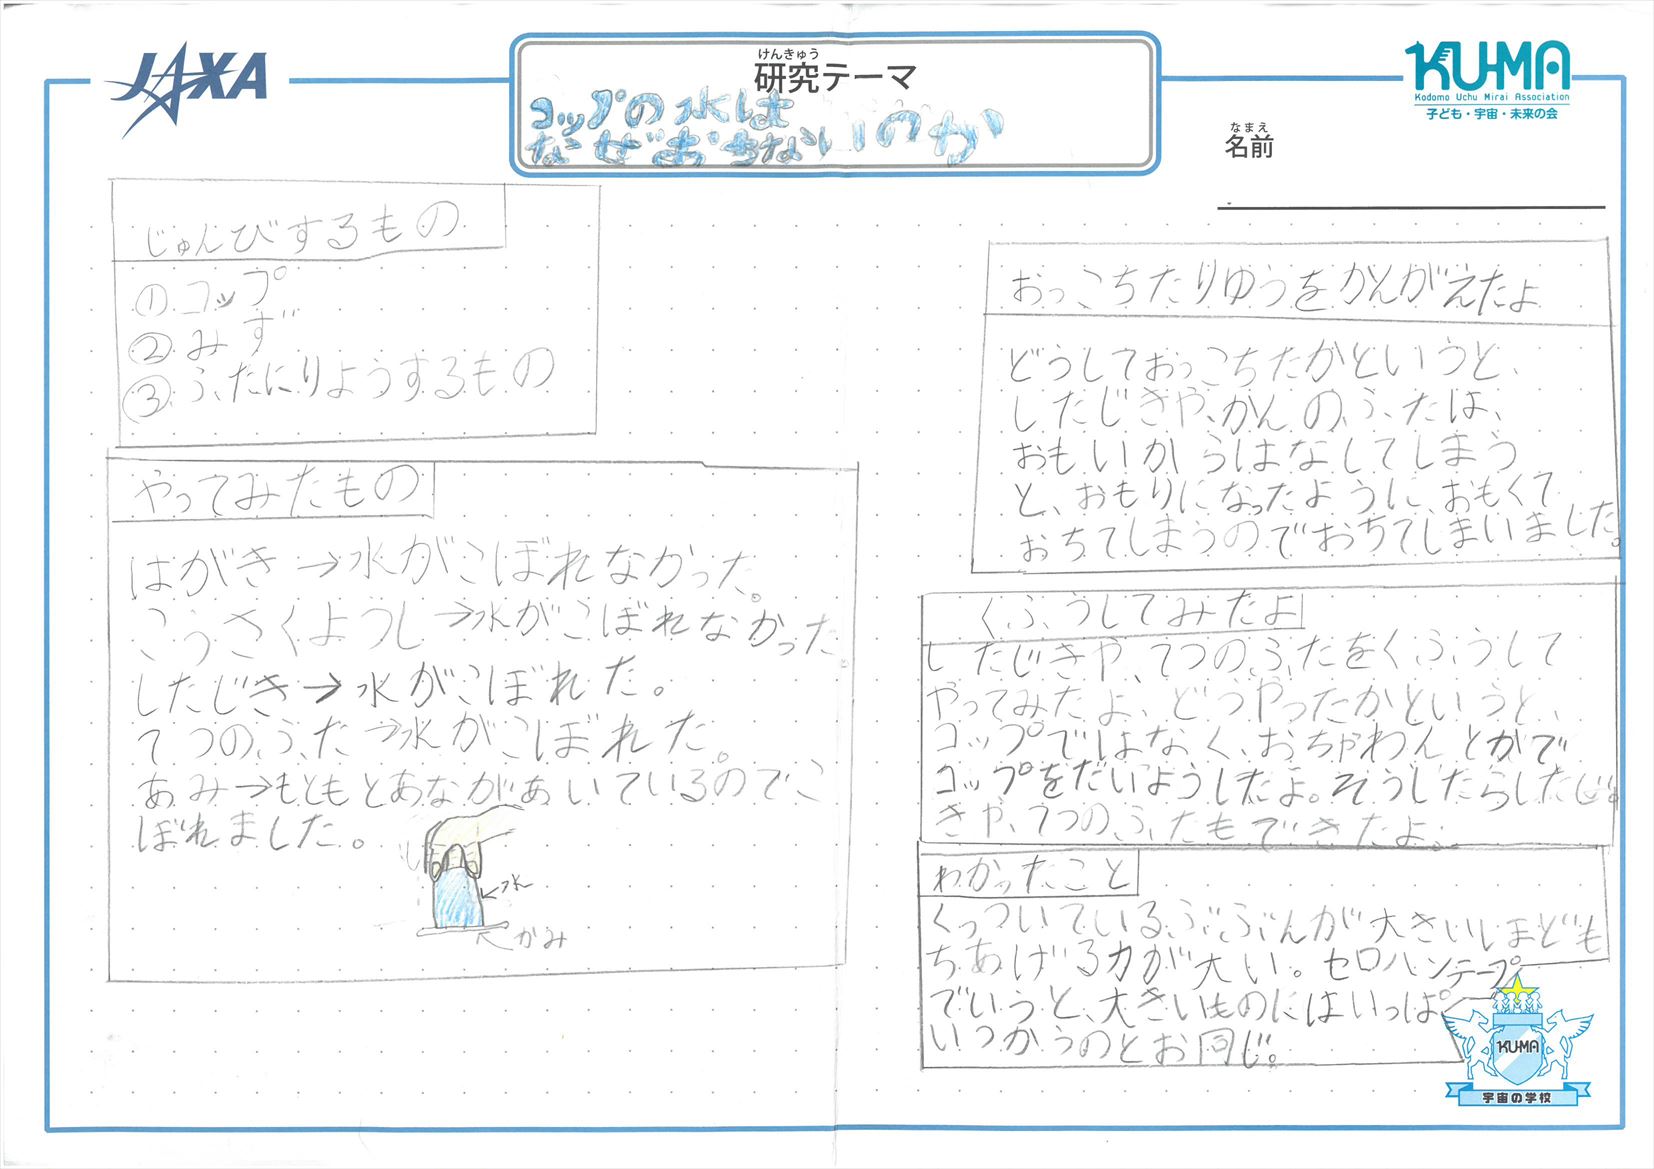 JAXA
けんきゅう
研究テーマ
コップの水は
なぜおちないのか
KU-MA
Kodomo Uchu Mirai Association
子ども・宇宙・未来の会
なまえ
名前
じゅんびするもの
①コップ
②みず
③ふたにりようするもの
やってみたもの
はがき→水がこぼれなかった。
こうさくようし→水がこぼれなかった。
したじき→水がこぼれた。
てつのふた→水がこぼれた。
あみ→もともとあながあいているのでこ
ぼれました。
←水
かみ
おっこちたりゆうをかんがえたよ
どうしておっこちたかというと、
したじきや、かんのふたは、
おもいからはなしてしまう
と、おもりになったようにおもくて
おちてしまうのでおちてしまいました。
くふうしてみたよ
したじきや、てつのふたをくふうして
やってみたよ、どうやったかというと、
コップではなく、おちゃわんとかで
コップをだいようしたよ。そうしたらしたじ
きや、てつのふたもできたよ。
わかったこと
くっついているぶぶんが大きいしまども
ちあげる力が大い。セロハンテープ
でいうと、大きいものにはいっぱ
いつかうのとお同じ。
KU-MA
宇宙の学校